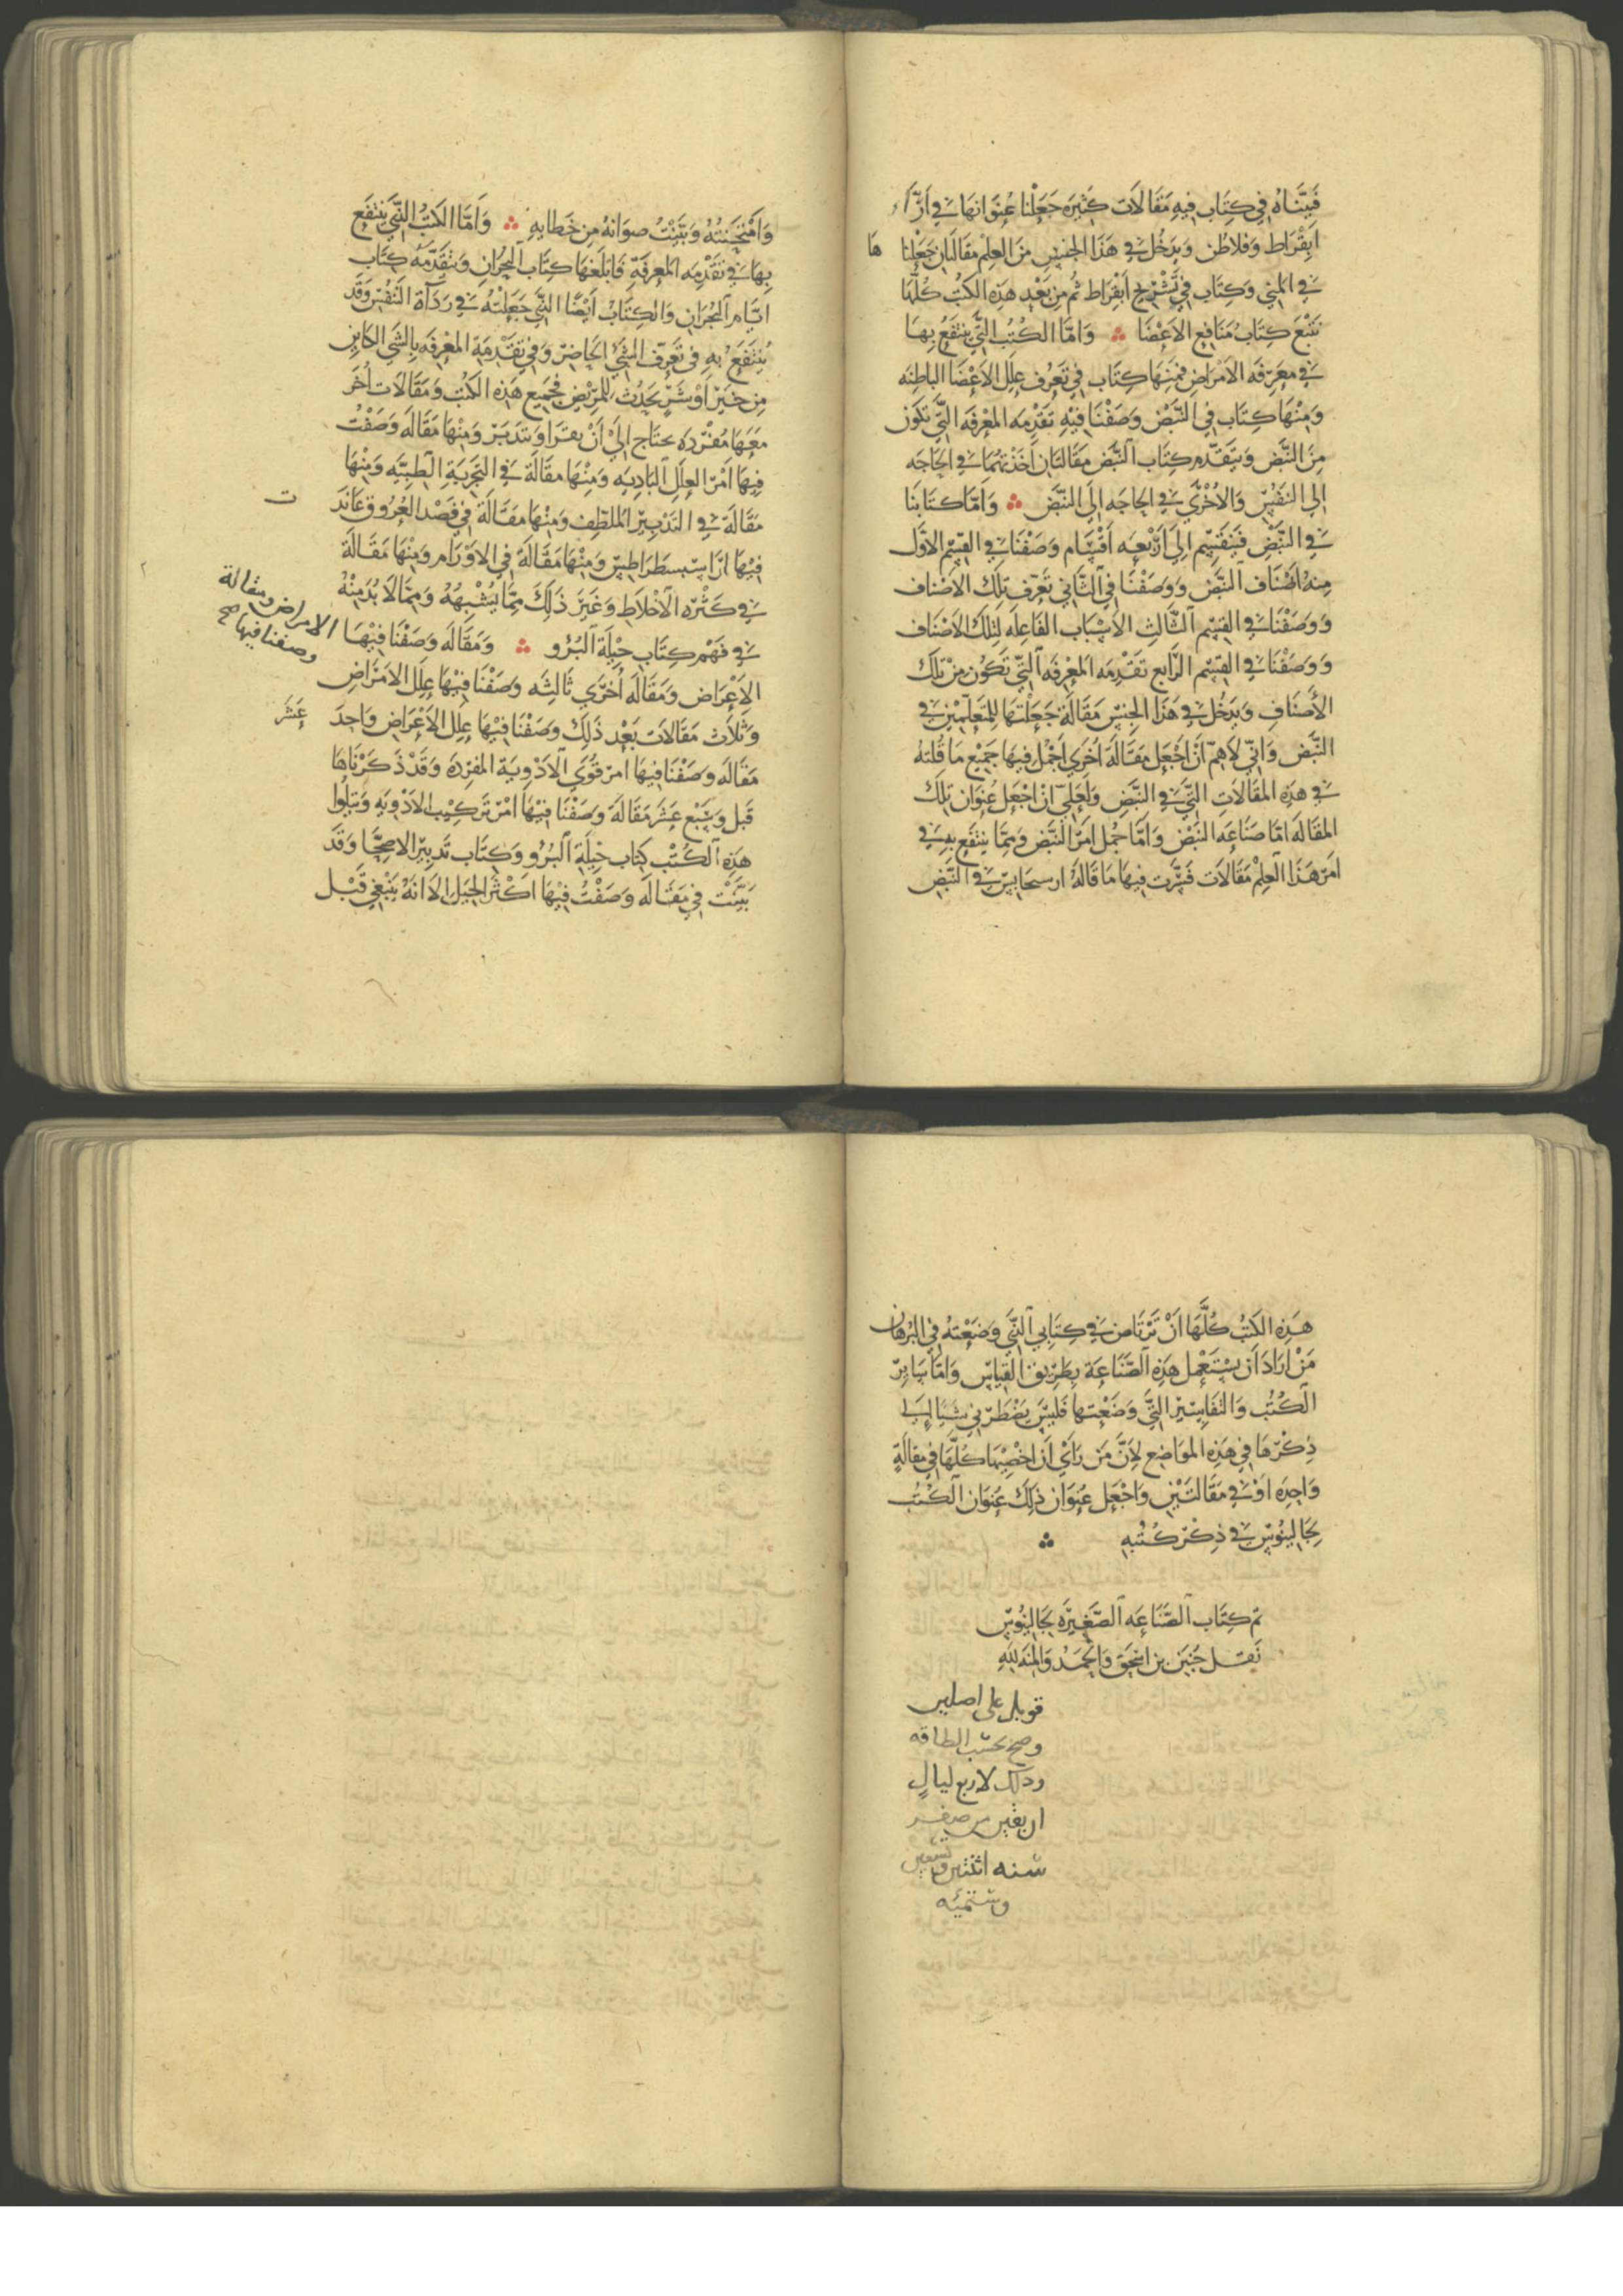 فَبَيَّنَاهُ فِي كِتَابٍ فِيهِ مَقَالَات كَثِيرَه جَعَلْنَا عُنْوَانهَا في ارَآء
ابقْرَاط وَفلاطُن وَيَدخُل في هَذَا الجنسِ مِنَ العِلْم مَقَالَتَان جَعَلْنا هَا
في المني وَكِتَاب في تَشْرِيح ابقْرَاط ثُم مِن بَعْدِ هَذِه الكتُب كُلّهَا
تَتْبَع كِتَابُ مَنَافِع الاَعْضَا ؞ وَامّا الكُتُب التي يُنتفَعُ بِهَا
في مَعرِفَه الاَمرَاضِ فَمِنهَا كِتَاب في تَعَرُف عِلَل الاَعْضَا البَاطِنَه
وَمِنْهَا كِتَاب في النَّبْض وَصَفْنَا فيْهِ تَقَدِمَه المعْرِفَه التّي تَكوُن
مِنَ النَّبْض وَيَتَقَدَّم كِتَابَ النَّبْض مَقَالتَان احَدَتهُمَا في الحَاجَه
الي النفَسّ وَالاُخْرَي في الحاجَه إلَي النبْض ؞ وَامّا كتَابنَا
في النَّبْض فَيَنقَسِم الَي ارْبَعَه اقْسَام وَصَفْنَا في القِسْم الاوَّل
مِنهُ اصْنَاف النَبض وَوَصَفْنَا في الثَّاني تَعَرّف تِلكَ الاصْنَاف
وَوَصَفْنَا في القسِمْ الثّالثِ الاَسْبَاب الفَاعِلَه لتِلكَ الاَصْنَاف
وَوَصَفْنَا في القِسْم الرَّابع تقَدِمَه المعْرِفَه التّي تَكُون مِنْ تِلكَ
الاَصنَافِ وَيَدخُل في هَذَا الجِنسّ مَقَالَة جَعَلْتهَا لِلمتَعَلّمِيْن في
النَّبْض وَاني لاَهِمّ اَن اجْعَل مَقَالَة اُخرَي اجمُل فيهَا جَمِيْع مَا قُلتهُ
في هَذِه المقَالَاتِ التَّي في النَبْضِ وَلَعَلِّي ان اجْعَل عُنوَان تِلكَ
المقَالَه امّا صَنَاعَه النَبْض وَامَّا جُمل امرَ النَّبض وَمِمّا يَنتفَع بهِ في
امرَ هَذَا العِلْم مَقَالَات فَسَّرْت فيهَا مَا قَالَهُ ارسحَانسّ في النَّبضِ
وَامْتَحَنتُهُ وَبَيَّنْتُ صوَابَهُ مِن خَطايهِ ؞ وَاَمّا الكتُبُ التِّي يَنتفَع
بِهَا في تَقْدِمَه المعرفَةِ فَابلَغهَا كِتَاب البُحْرَانِ وَيتَقَدَّمَهُ كِتَاب
ايّام البُحْرَانِ وَالكِتَابُ ايْضًا التَّي جَعَلْتهُ في رَدَآة النَفْسّ وَقَد
يُنتفَع بهِ في تَعَرّف الشَّي الحَاضِر وَفي تقَدِمَة المعْرِفَه بِالشَي الكاين
مِن خَيْرٍ اَوْ شَرٍّ يَحدُث لِلمَريْضِ فَجَميع هَذِه الكتُب وَمَقَالَات اُخَر
مَعَهَا مُفْردَه يحتَاج اليْ اَنْ يقترَا وَتتدَبَّر وَمِنْهَا مَقَالَه وَصَفْت
فيها اَمْر العِلَل البَادِيه وَمِنْهَا مقَالَة في التَجْرِبَةِ الطِبيّهِ وَمِنْهَا
مَقَالَة في التَدْبير الملَطّف وَمِنْهَا مَقَالَة في فَصْد العُرُوق عَانَدَ ت
فيْهَا ارَاسيسطرَاطِسّ وَمِنْهَا مَقَالَة في الاَوْرَام وَمِنْهَا مَقَالَة
في كَثْرَه الاَخْلَاط وَغَيْرَ ذَلِكَ مِمّا يُشْبِههُ وَمِمّا لَا بُد مِنْهُ
في فَهْم كِتَاب حِيْلَة البُرْو ؞ وَمَقَالَه وَصَفْنَا فِيْهَا
الامراض ومقالة
وصفنا فيها صح
الاِعْرَاض وَمَقَالَه اُخرَي ثَالثِه وَصَفْنَا فيْهَا عِلَل الامرَاضِ
وَثلَاث مَقَالَات بَعْد ذَلِكَ وَصَفْنَا فيْهَا عِلَل الاَعْرَاضِ وَاحدَ عَشَر
مَقَالَه وَصَفْنَا فيهَا امرَ قُوَي الاَدْوِيَة المفرَدَه وَقَدْ ذَكَرْنَاهَا
قَبل وَسَبْع عَشَر مَقَالَة وَصَفْنَا فيْهَا امْر تَركيْب الاَدْويَه وَيَتلُوا
هَذِه الكتُبْ كِتَاب حِيْلَة البُرْو وَكِتَاب تَدبير الاصِحَّا وَقَد
بَيَّنْت فِي مَقَالَه وَصَفْتُ فيْهَا اَكْثَر الحِيَل الا انَهُ يَنْبَغِي قَبْل
هَذِه الكتُب كُلّهَا اَنْ يَرْتَاض في كِتابي التَّي وَضَعْتهُ في البُرهَان
مَنْ ارَادَ اَن يسْتَعْمل هَذِه الصّنَاعَة بِطَريْق القِيَاسِ وَامّا سَايرَ
الكُتُب وَالتفَاسِيْر التَّي وَضَعْتها فَليسَّ يَضْطَرّني شَيا الي
ذِكْرهَا في هَذِه الموَاضِع لاَنَّ مَن رَاْيي اَن احْصِيْهَا كُلّهَا في مقَالَةٍ
وَاحِدَه اَوْ في مَقَالتَيْن وَاجْعَل عُنْوَان ذَلِكَ عِنوَان الكُتُب
لِجَالينُوسّ في ذِكْر كُتُبهِ ؞
تم كِتَاب الصّنَاعَه الصَّغِيْرَه لِجَالينُوسّ
نَقل حُنَين بن اسْحَق وَالحَمْد وَالمِنَّه للهِ
قوبل على اصلين
وصح بحسب الطاقه
وذلك لاربع ليالٍ
ان بقين من صفر
سنه اثنتين وتسعين
وستمئه